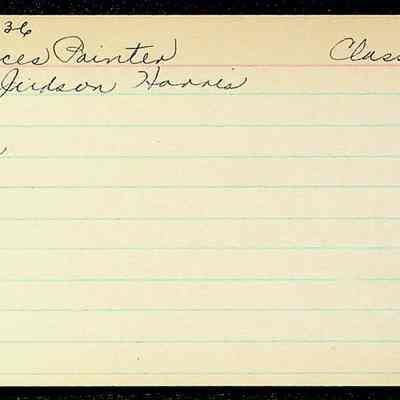 36
ces Painter Clas
Judson Harris